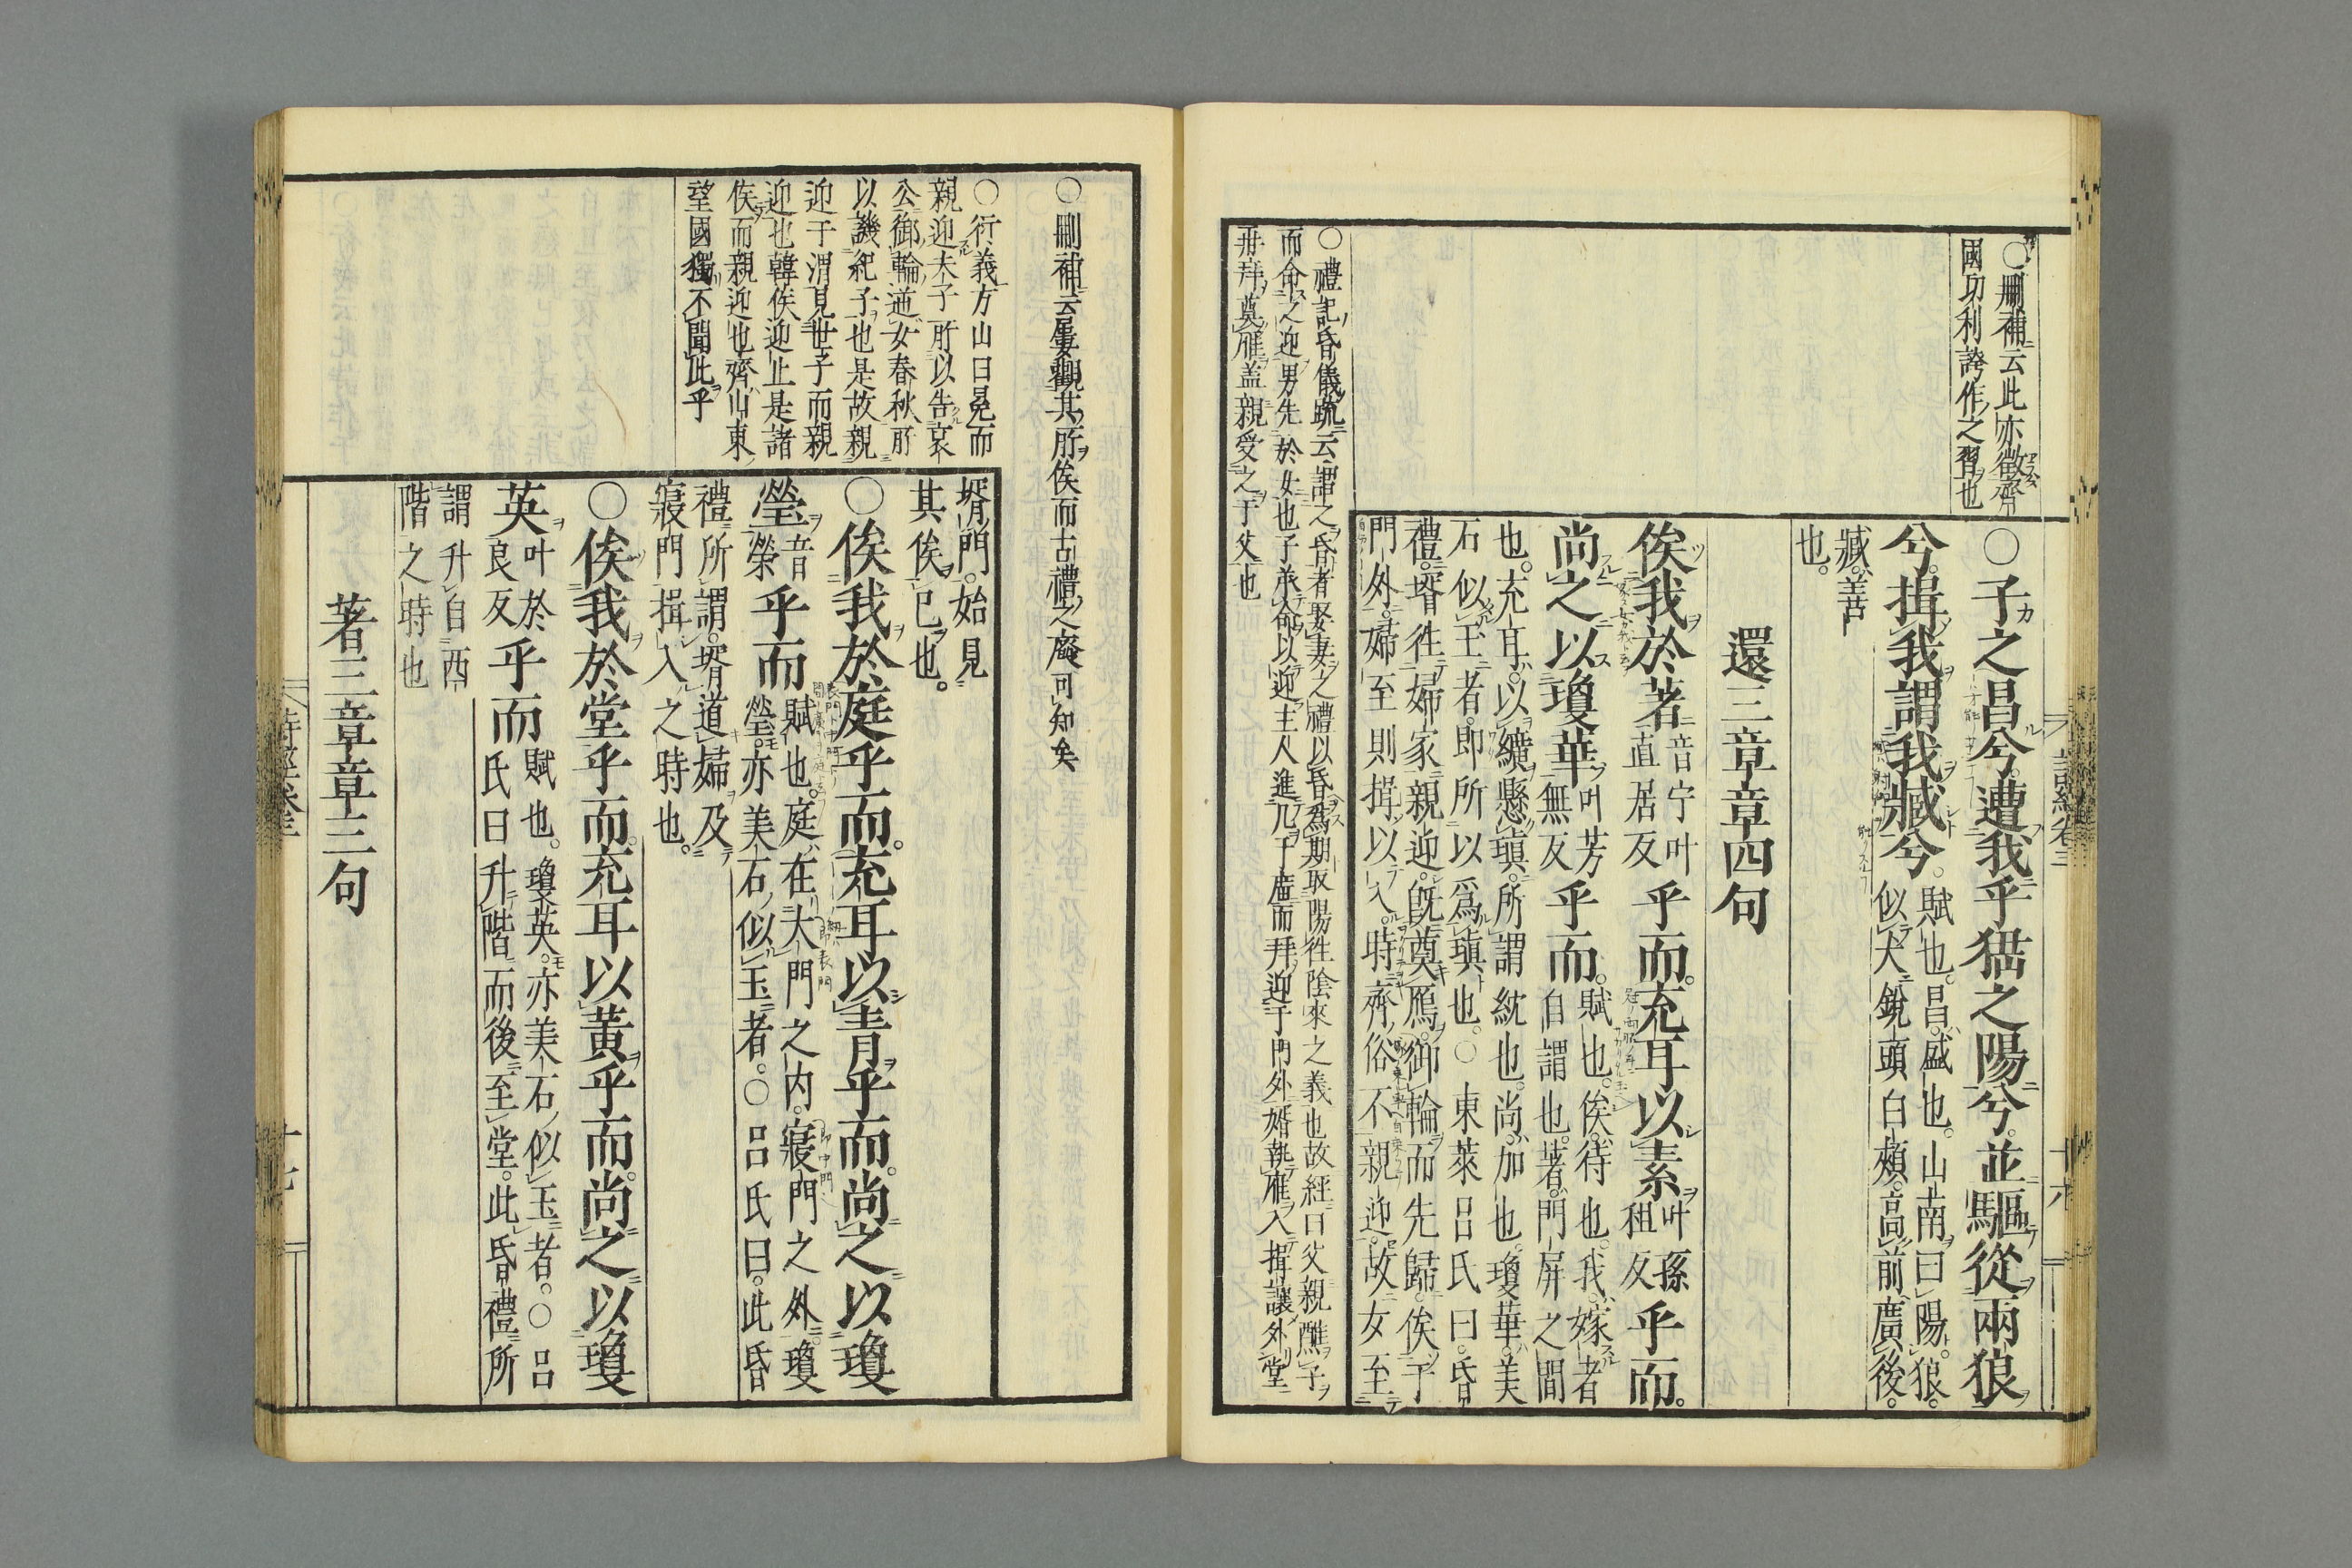 ○刪補云此亦徵齊
國功利誇作之習也
○子之昌兮遭我乎猺之陽兮並驅從兩狼
兮揖我謂我臧兮
賦也。昌。盛也。山南曰陽。狼。
似犬銳頭白頰。高前廣後。
臧。善
也。
還三章章四句
俟我於著
音宁叶
直居反
乎而。充耳以素
叶孫
租反
乎而。
尚之以瓊華
叶芳
無反
乎而。
賦也。俟。待也。我。嫁者
自謂也。著。門屏之間
也。充耳。以纊懸瑱。所謂紞也。尚。加也。瓊華。美
石似玉者。即所以爲瑱也。○東萊呂氏曰。昏
禮。壻往婦家親迎。旣奠鴈。御輪而先歸。俟于
門外。婦至則揖以入。時齊俗不親迎。故女至
○禮記昏儀疏云謂之昏者娶妻之禮以昏爲期取陽往陰來之義也故經曰父親醮子
而命之迎男先於女也子承命以迎主人進几于廬而拜迎于門外婿執雁入揖讓外堂
再拜奠雁盖親受之于父也
詩經卷三
十六
○刪補云屢觀其所俟而古禮之廢可知矣
○衍義方山曰冕而
親迎夫子所以告哀
公御輪逆女春秋所
以譏紀子也是故親
迎于渭見世子而親
迎也韓侯迎止是諸
侯而親迎也齊山東
望國獨不聞此乎
壻門。始見
其俟已也。
○俟我於庭乎而。充耳以青乎而。尚之以瓊
瑩
音
榮
乎而
賦也。庭。在大門之内。寢門之外。瓊
瑩。亦美石似玉者。○呂氏曰。此昏
禮所謂。壻道婦及
寢門揖入之時也。
○俟我於堂乎而。充耳以黃乎而。尚之以瓊
英
叶於
良反
乎而
賦也。瓊英。亦美石似玉者。○呂
氏曰升階而後至堂。此昏禮所
謂升自西
階之時也
著三章章三句
詩經卷三
十七